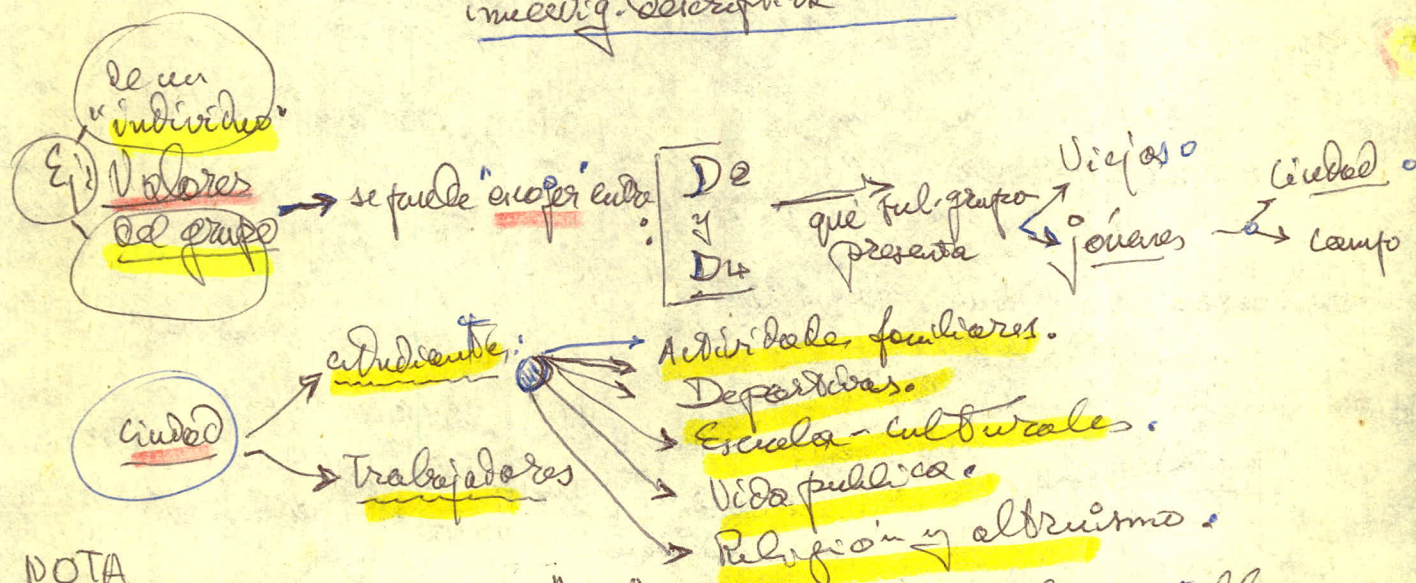 investig. descriptiva
De un
"individuo"
Ej: Valores
del grupo
se puede "escojer" entre :
D2
y
D4
qué sub-grupo
presenta
Viejos
jóvenes
Ciudad
campo
Ciudad
estudiantes:
Trabajadores
Actividades familiares.
Deportivas.
Escuela - Culturales.
Vida publica.
Religión y altruismo.
NOTA